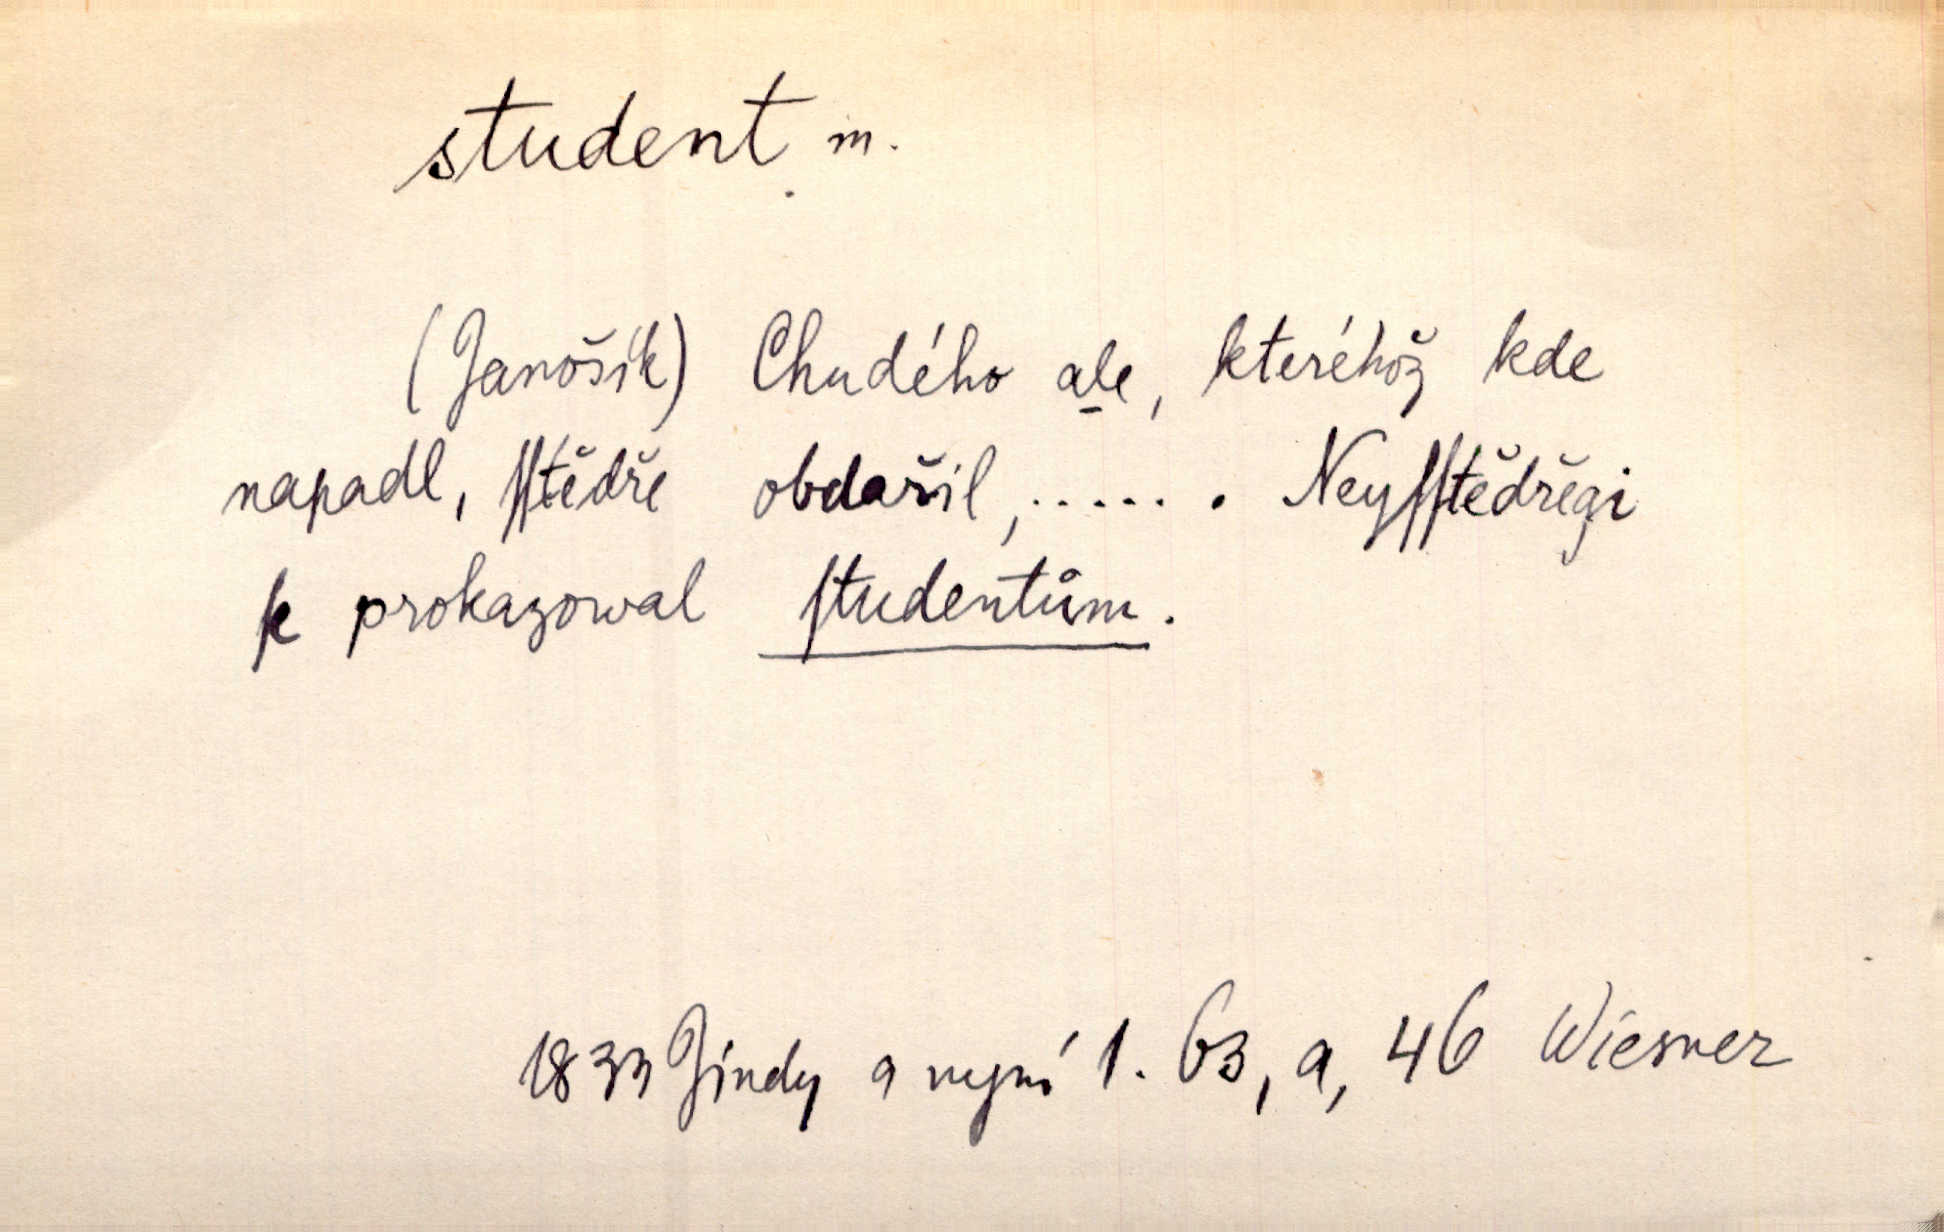 student m.
(Janošík) Chudého ale, kteréhož kde
napadl, sstědře obdařil, ..... . Neysstědřěgi
se prokazowal studentům.
1833 Jindy a nyní 1. 63, a, 46 Wiesner